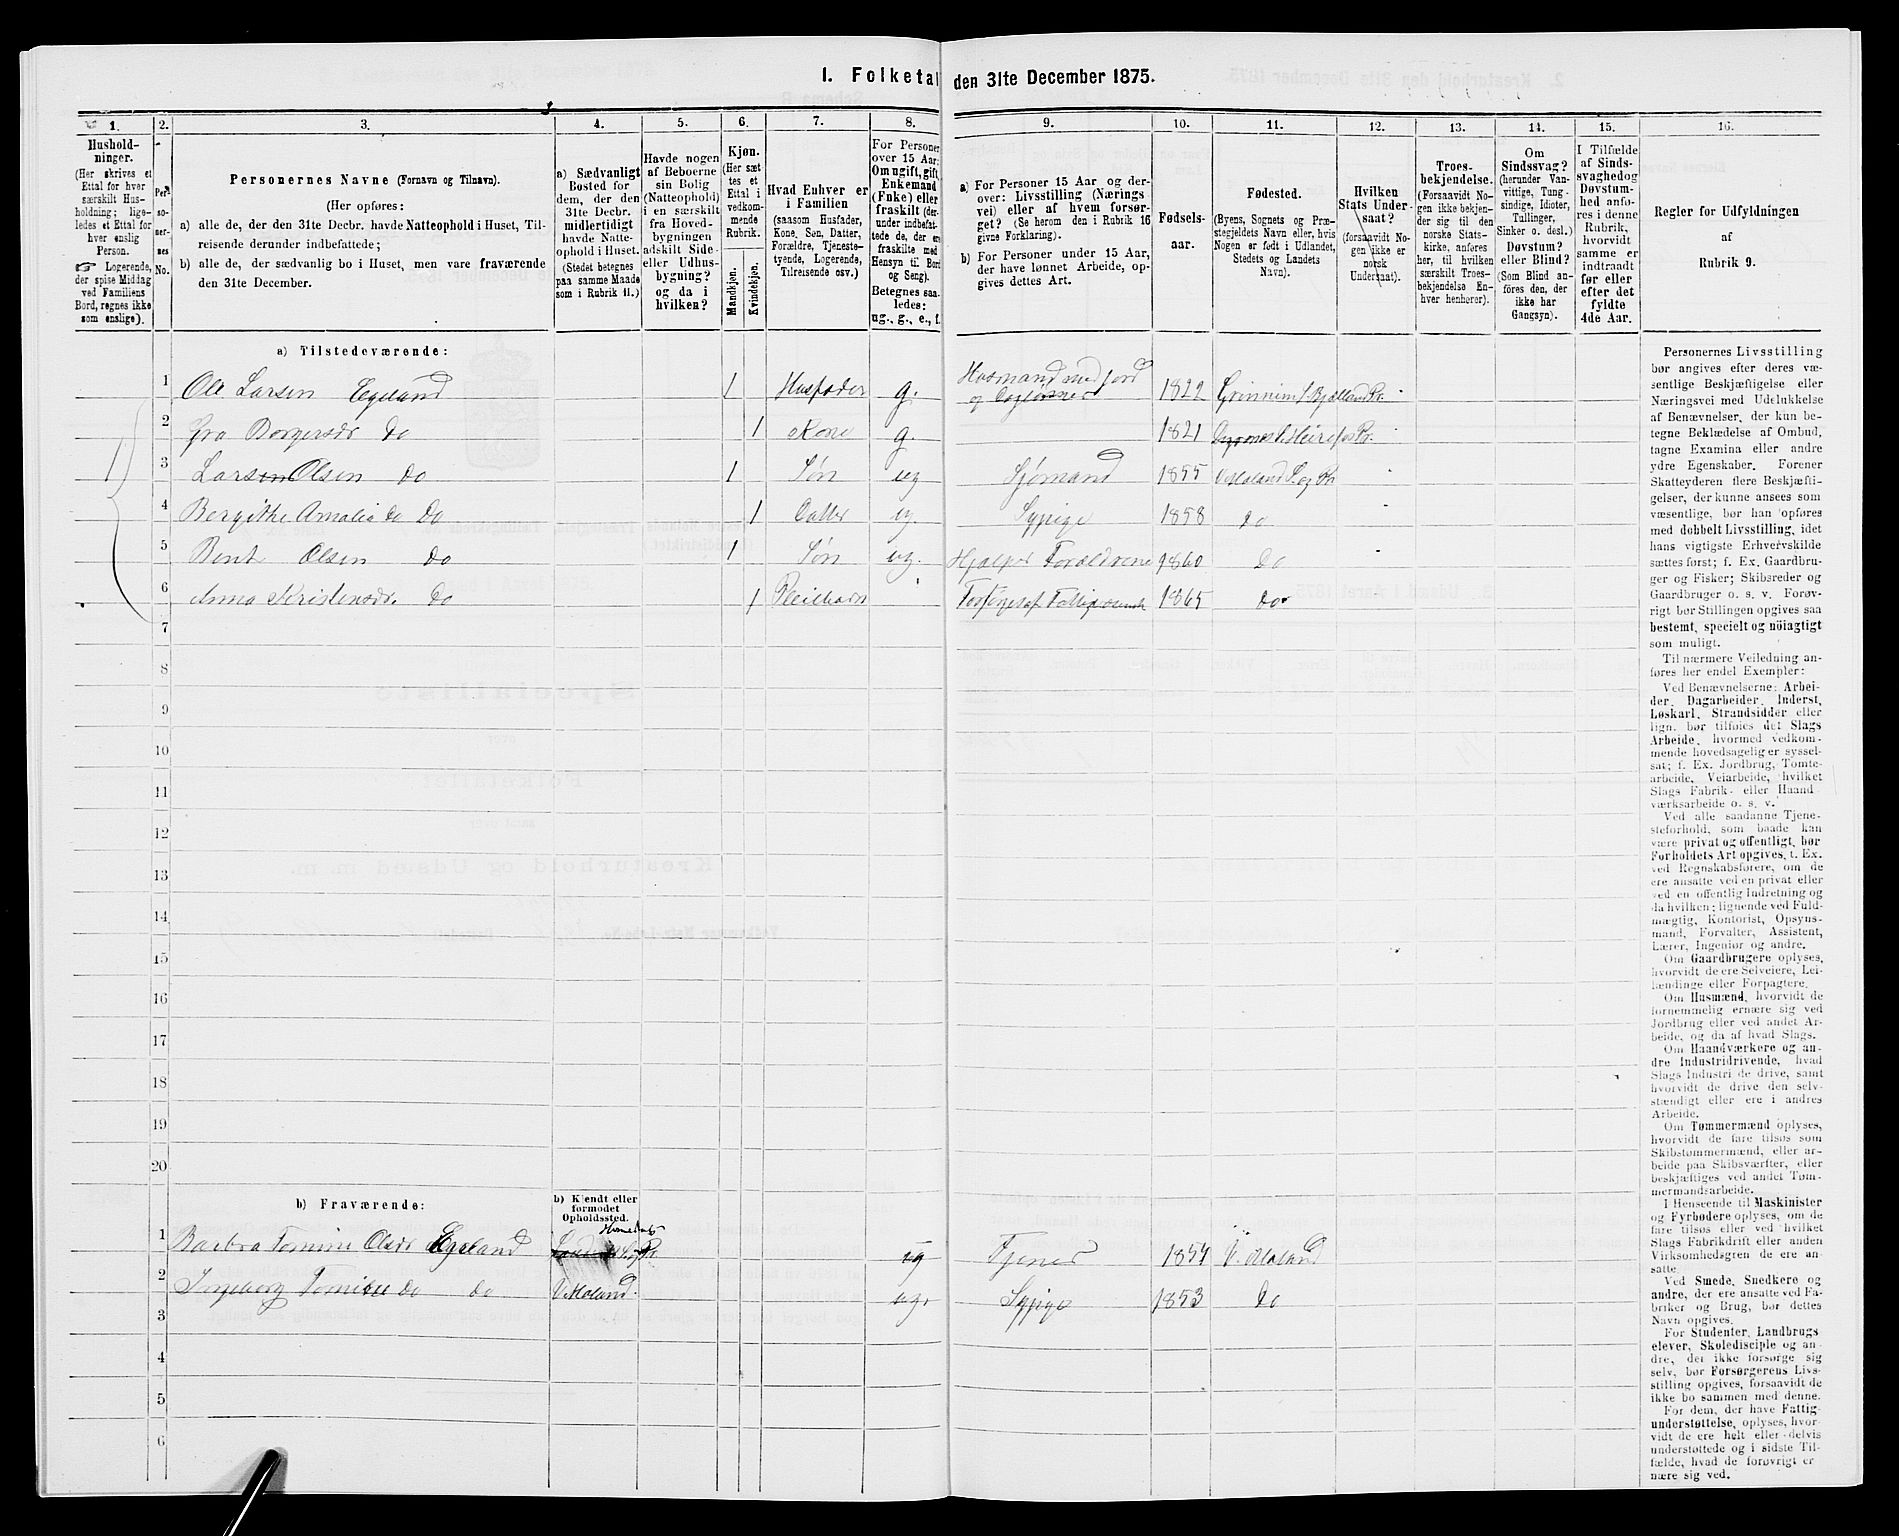 1. Folketal den 31te December 1875.
1. 2. 3. 4. 5. 6. 7. 8. 9. 10. 11. 12. 13. 14. 15. 16.
Hushold-
ninger.
(Her skrives et
Ettal for hver
særskilt Hus-
holdning; lige-
ledes et Ettal for
hver enslig
Person.
☞ Logerende,
der spise Middag
ved Familiens
Bord, regnes ikke
som enslige).
Per-
so-
ner-
nes
No.
Personernes Navne (Fornavn og Tilnavn).
(Her opføres:
a) alle de, der den 31te Decbr. havde Natteophold i Huset, Til-
reisende derunder indbefattede;
b) alle de, der sædvanlig bo i Huset, men vare fraværende
den 31te December.
a) Sædvanligt
Bosted for
dem, der den
31te Decbr.
midlertidigt
havde Natte-
ophold i Huset.
(Stedet betegnes
paa samme Maade
som i Rubrik 11.)
Havde nogen
af Beboerne
sin Bolig
(Natteophold)
i en særskilt
fra Hoved-
bygningen
adskilt Side-
eller Udhus-
bygning?
og da i
hvilken?
Kjøn.
(Her sæt-
tes et
Ettal i
vedkom-
mende
Rubrik.
Mandkjøn.
Kvindekjøn.
Hvad Enhver er
i Familien
(saasom Husfader,
Kone, Søn, Datter,
Forældre, Tjeneste-
tyende, Logerende,
Tilreisende osv.)
For Personer
over 15 Aar:
Om ugift, gift,
Enkemand
(Enke) eller
fraskilt (der-
under indbefat-
tede de, der ere
fraskilte med
Hensyn til Bord
og Seng).
Betegnes saa-
ledes:
ug., g., e., f.
a) For Personer 15 Aar og der-
over: Livsstilling (Nærings-
vei) eller af hvem forsør-
get? (Se herom den i Rubrik 16
givne Forklaring).
b) For Personer under 15 Aar,
der have lønnet Arbeide, op-
gives dettes Art.
Fødsels-
aar.
Fødested.
(Byens, Sognets og Præ-
stegjeldets Navn eller, hvis
Nogen er født i Udlandet,
Stedets og Landets
Navn).
Hvilken
Stats Under-
saat?
(forsaavidt No-
gen ikke er
norsk
Undersaat).
Troes-
bekjendelse.
(Forsaavidt No-
gen ikke bekjen-
der sig til den
norske Stats-
kirke, anføres
her, til hvilken
særskilt Troes-
bekjendelse En-
hver henhører).
Om
Sindssvag?
(herunder Van-
vittige, Tung-
sindige, Idioter,
Tullinger,
Sinker o. desl.)
Døvstum?
eller Blind?
(Som Blind an-
føres den, der
ikke har
Gangsyn).
I Tilfælde
af Sinds-
svaghed og
Døvstum-
hed anfø-
res i denne
Rubrik,
hvorvidt
samme er
indtraadt
før eller
efter det
fyldte
4de Aar.
Regler for Udfyldningen
af
Rubrik 9.
a) Tilstedeværende:
1 Ole Larsen Egeland 1 Husfader g. Husmand med Jord
og Dagløsner 1822 Grinnim S Bjelland Pr.
2 Borgersdr do 1 Kone g. 1821 Pr.
1 3 Lars Olsen do 1 Søn ug Sjømand 1855 V Moland S. og Pr
4 Bergithe Amalia do do 1 Datter ug. Sypige 1858 do
5 Bent Olsen do 1 Søn ug. Hjælper Forældrene 1860 do
6 Anna Kristensdr. do 1 Pleiebarn 1865 do
7
8
9
10
11
12
13
14
15
16
17
18
19
20
b) Fraværende:
b) Kjendt eller
formodet
Opholdssted.
1 Barbra Tomine Olsdr Egeland ug Tjener 1857 V. Moland
2 Ingeborg Tomine do do V Moland. ug. Sypige 1853 do
3
4
5
6
Personernes Livsstilling
bør angives efter deres væ-
sentlige Beskjæftigelse eller
Næringsvei med Udelukkelse
af Benævnelser, der kun be-
tegne Beklædelse af Ombud,
tagne Examina eller andre
ydre Egenskaber. Forener
Skatteyderen flere Beskjæfti-
gelser, der kunne ansees som
væsentlige, bør han opføres
med dobbelt Livsstilling, idet
hans vigtigste Erhvervskilde
sættes først; f. Ex. Gaardbru-
ger og Fisker; Skibsreder og
Gaardbruger o. s. v. Forøv-
rigt bør Stillingen opgives saa
bestemt, specielt og nøiagtigt
som muligt.
Til nærmere Veiledning an-
føres her endel Exempler:
Ved Benævnelserne: Arbei-
der, Dagarbeider, Inderst,
Løskarl, Strandsidder eller
lign. bør tilføies det Slags
Arbeide, hvormed vedkom-
mende hovedsagelig er syssel-
sat; f. Ex. Jordbrug, Tomte-
arbeide, Veiarbeide, hvilket
Slags Fabrik- eller Haand-
værksarbeide o. s. v.
Ved alle saadanne Tjene-
steforhold, som baade kan
være privat og offentligt, bør
Forholdets Art opgives, t. Ex.
ved Regnskabsførere, om de
ere ansatte ved en privat eller
ved en offentlig Indretning og
da hvilken; lignende ved Fuld-
mægtig, Kontorist, Opsyns-
mand, Forvalter, Assistent,
Lærer, Ingeniør og andre.
Om Gaardbrugere oplyses,
hvorvidt de ere Selveiere, Lei-
lændinge eller Forpagtere.
Om Husmænd, hvorvidt de
fornemmelig ernære sig ved
Jordbrug eller ved andet Ar-
beide, og da af hvad Slags.
Om Haandværkere og an-
dre Industridrivende, hvad
Slags Industri de drive, samt
hvorvidt de drive den selv-
stændigt eller ere i andres
Arbeide.
Om Tømmermænd oplyses,
hvorvidt de fare tilsøs som
Skibstømmermænd, eller ar-
beide paa Skibsværfter, eller
beskjæftiges ved andet Tøm-
mermandsarbeide.
I Henseende til Maskinister
og Fyrbødere oplyses, om de
fare tilsøs eller ved hvilket
Slags Fabrikdrift eller anden
Virksomhedsgren de ere an-
satte.
Ved Smede, Snedkere og
andre, der ere ansatte ved Fa-
briker og Brug, bør dettes
Navn opgives.
For Studenter, Landbrugs-
elever, Skoledisciple og an-
dre, der ikke forsørge sig
selv, bør Forsørgerens Livs-
stilling opgives, forsaavidt de
ikke bo sammen med denne.
For dem, der have Fattig-
understøttelse, oplyses, hvor-
vidt de ere helt eller delvis
understøttede og i sidste Til-
fælde, hvad de forøvrigt er-
nære sig ved.